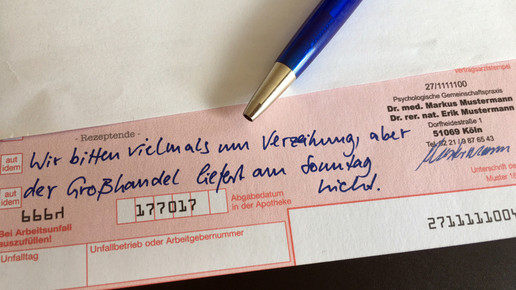 27/1111100
Vertragsarztstempel
Psychologische Gemeinschaftspraxis
Dr. med. Markus Mustermann
Dr. rer. nat. Erik Mustermann
Dorfheidestraße 1
51069 Köln
Tel. 02 21 / 9 87 65 43
Mustermann
Unterschrift
Muster 16
- Rezeptende -
aut idem
Wir bitten vielmals um Verzeihung, aber
aut idem
der Großhandel liefert am Sonntag
nicht.
bbbH
177017
Abgabedatum
in der Apotheke
Bei Arbeitsunfall
auszufüllen!
Unfalltag
Unfallbetrieb oder Arbeitgebernummer
2711111004